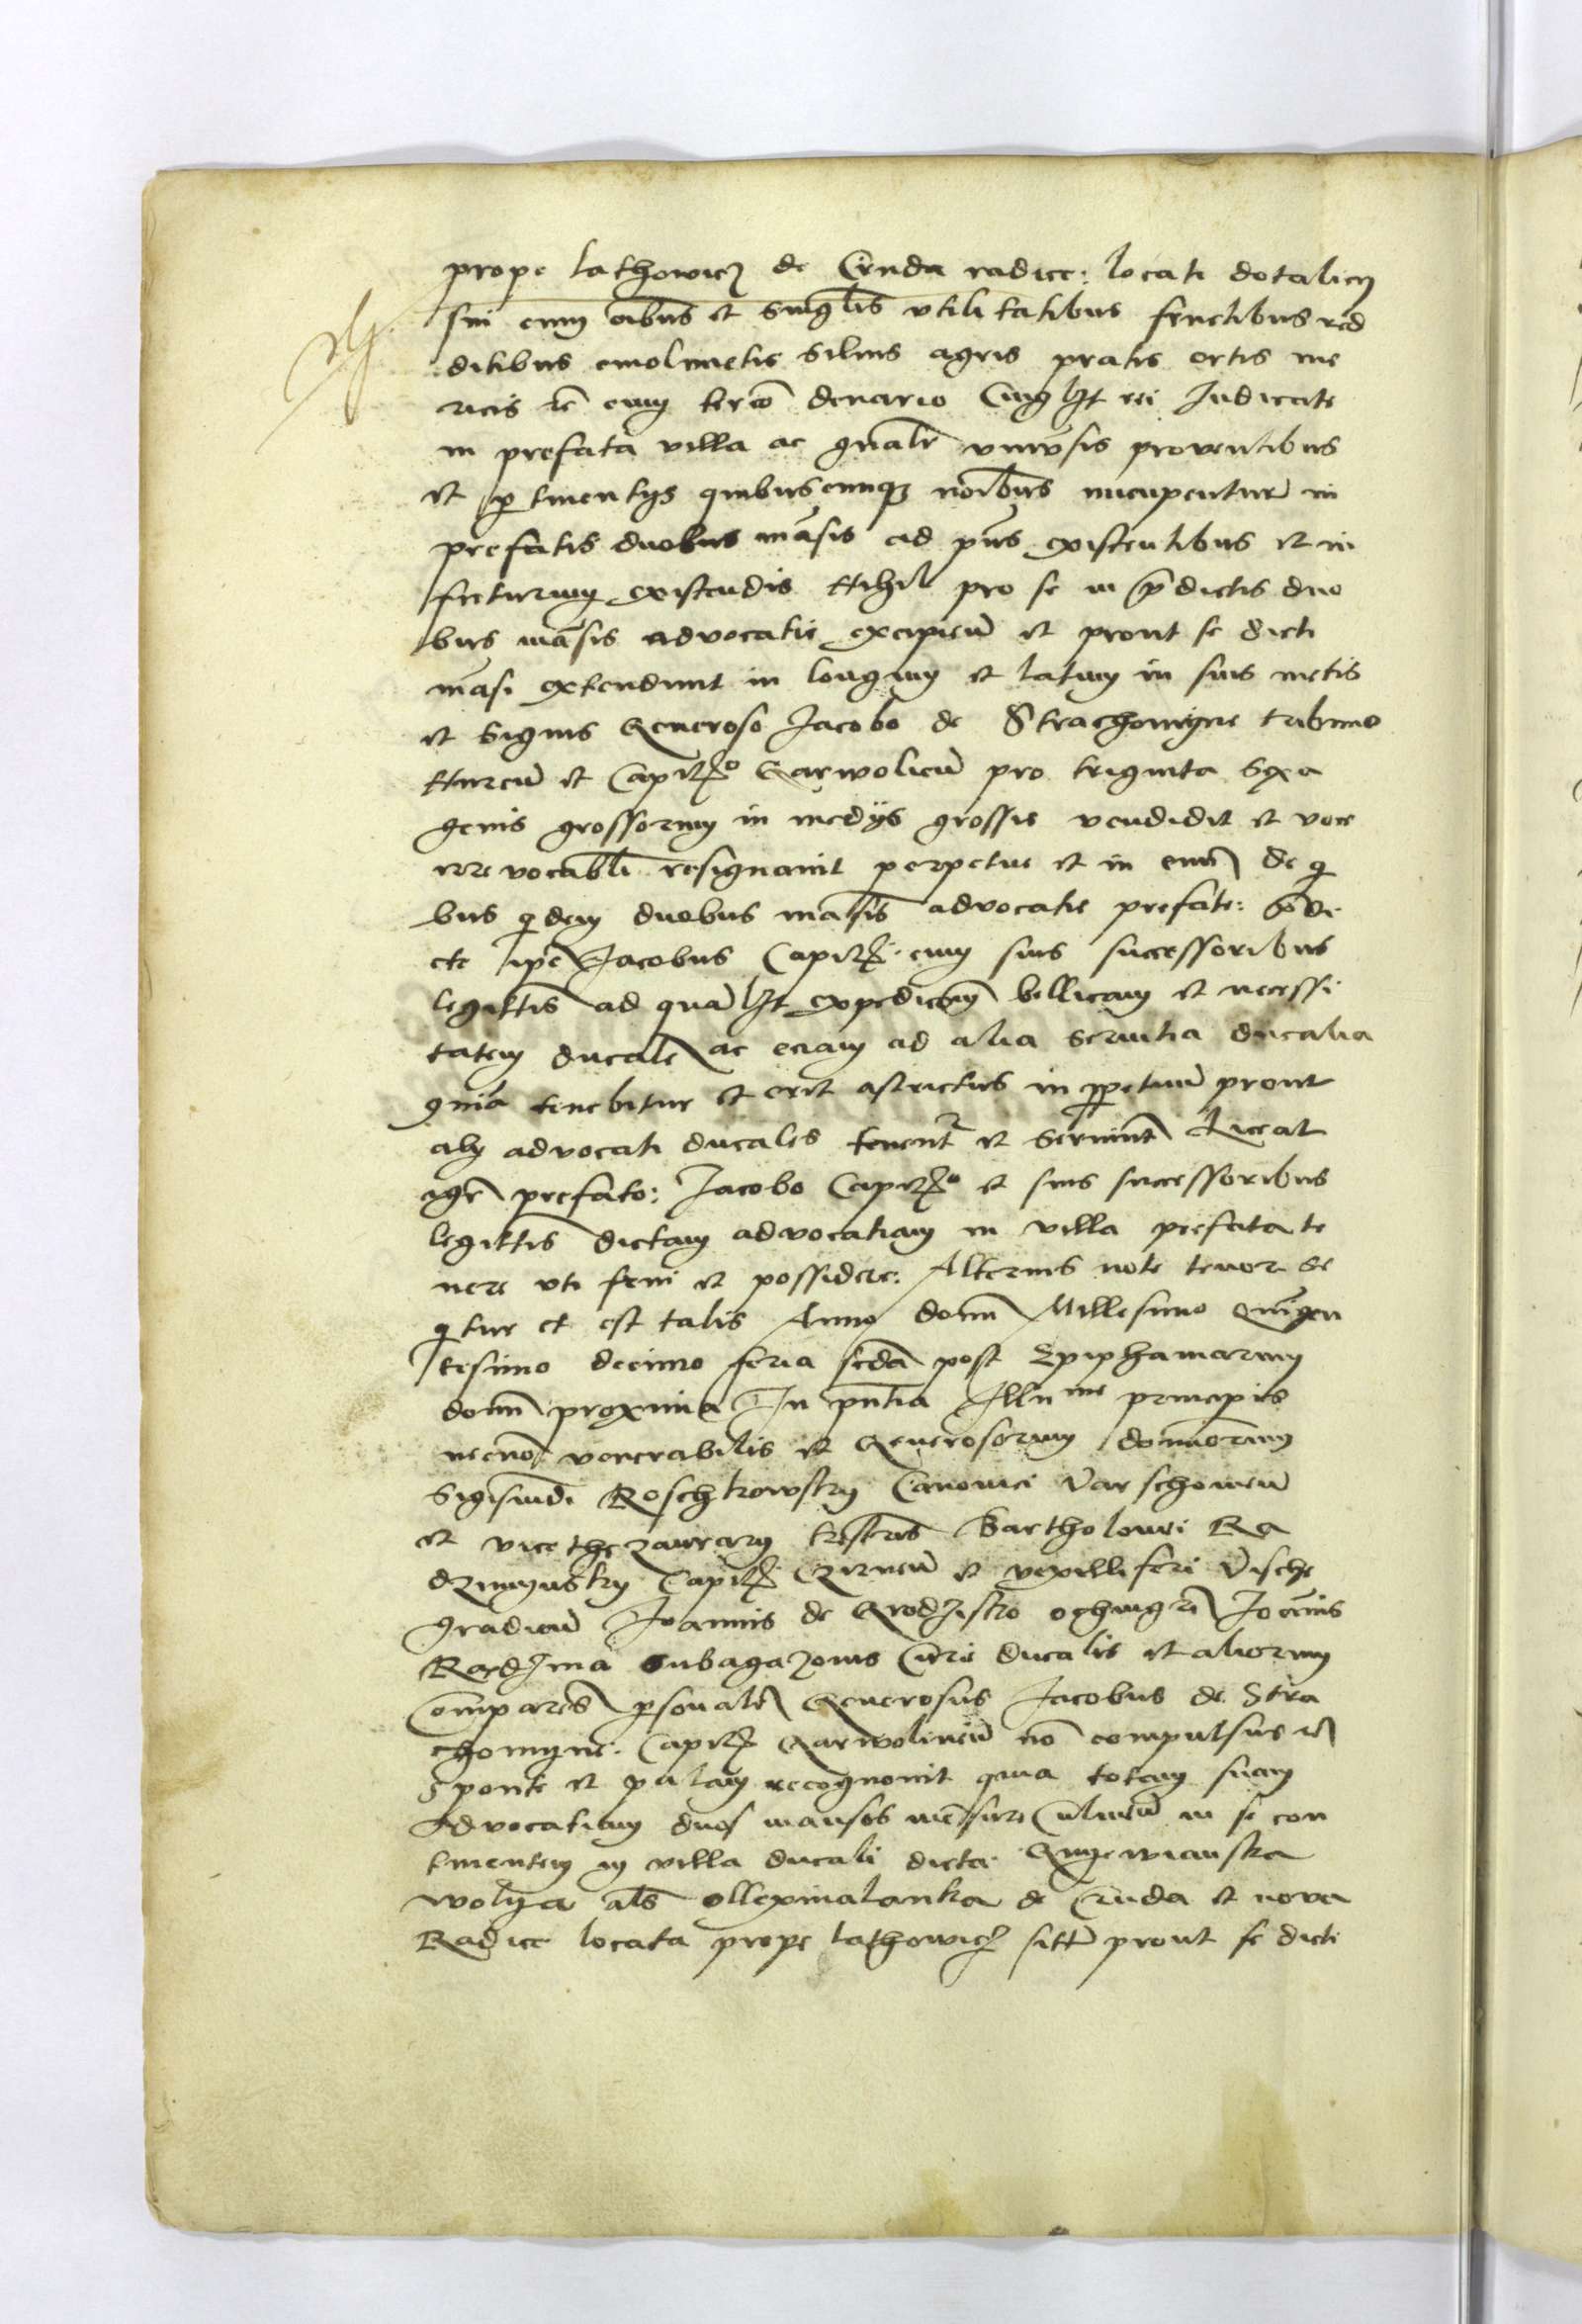 prope lathowicz de Cruda radice: locati dotalicij
sui cum oibus et singlis vtilitatibus fructibus red
ditibus emolimetis siluis agris pratis ortis me
ricis ac cum tercio denario Cuiuslibet rei Iudicate
in prefata villa ac gnalr vniuersis prouentibus
et pertinentijs quibuscunque noibus nucupentur in
prefatis duobus masis ad pns existentibus et in
futurum existendis Nihil pro se in predictis duo
bus masis advocatie excipieu et prout se dicti
masi extendunt in longum et latum in suis metis
et signis Generoso Jacobo de Strachomyne tribuno
Nurcu et Capito Garwolieu pro triginta sexa
genis grossorum in medijs grossis vendidit et voce
irrevocabli resignauit perpetue et in euu de qui
bus quidem duobus masis advocatie prefate: predi
cte ipe Jacobus Capit cum suis successoribus
legittis ad qualibet expedicoem bellicam et necessi
tatem ducale ac eciam ad alia seruitia ducalia
gnia tenebitur et erit astrictus in perpetuum prout
alij advocati ducales tenent et seruiunt Liceat
igr prefato: Jacobo Capito et suis successoribus
legittis dictam advocatiam in villa prefata te
nere vti frui et possidere: Alterius note tenor se
quitur et est talis Anno domi Millesimo quigen
tesimo decimo feria scda post Epiphaniarum
domi proxima In pntia Illume principis
necno venerabilis et Generosorum dominorum
Sigismudi Roschkowsky Canonici Varschouieu
et vicethezaurary Bartholomei Ra
dzimynsky Capit Czirneu et vexilliferi Vische
gradieu Joannis de Grodzisko Joannis
Radzmia subagazonis Curie ducalis et aliorum
Compares personalr Generosus Jacobus de Stra
chomyne: Capit Garwolineu no compulsus
sponte et palam recognouit quia totam suam
Advocatiam duos mansos mesure Culmeu in se con
tinentem in villa ducali dicta
wolya als ollexinalanka de Cruda et nova
Radice locata prope lathowicz sitt prout se dicti